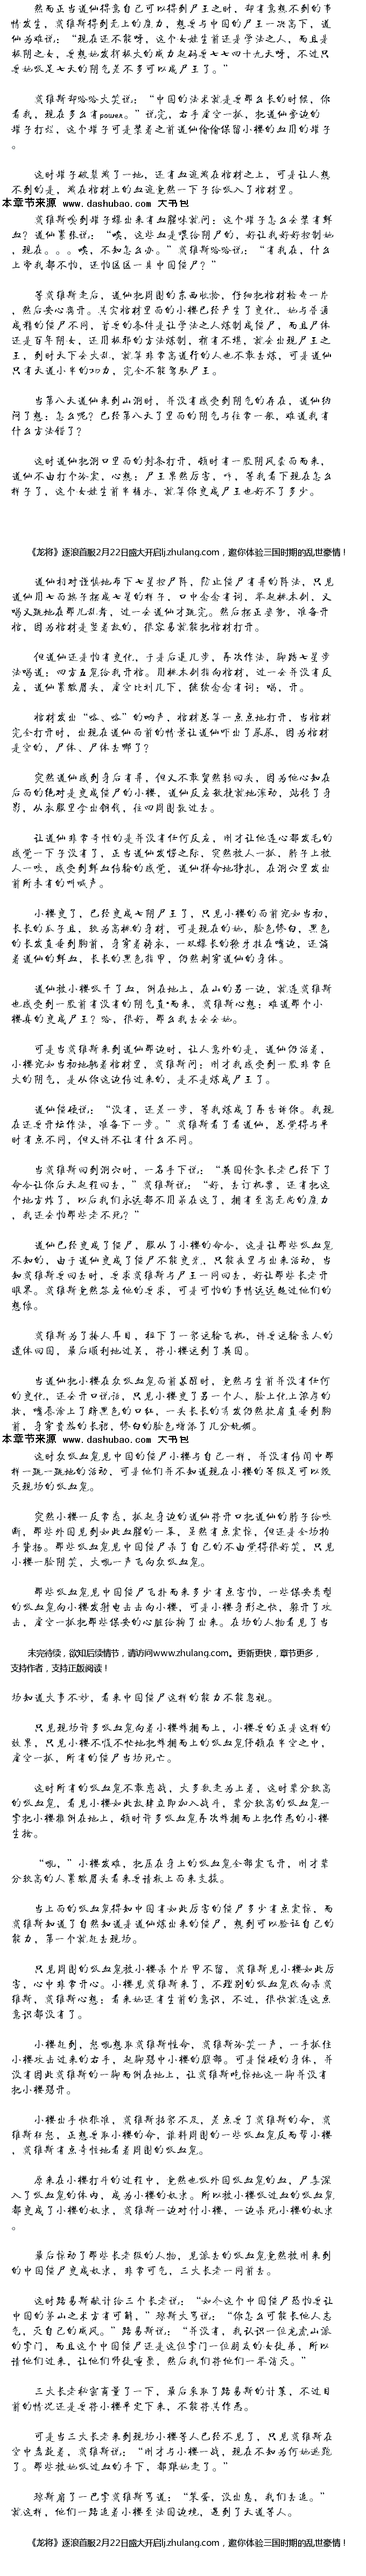 然而正当道仙得意自己可以得到尸王之时，却有意想不到的事
情发生，莫维斯得到无上的魔力，想要与中国的尸王一决高下，道
仙为难说：“现在还不能呀，这个女娃生前还是学法之人，而且是
极阴之女，要想她发挥极大的威力起码要七七四十九天呀，不过只
要她吸足七天的阴气差不多可以成尸王了。”
莫维斯却哈哈大笑说：“中国的法术就是要那么长的时候，你
看我，现在多么有power。”说完，右手虚空一抓，把道仙旁边的
坛子打烂，这个坛子可是装着之前道仙偷偷保留小樱的血用的坛子
。
这时坛子破裂溅了一地，还有血溅在棺材之上，可是让人想
不到的是，溅在棺材上的血迹竟然一下子给吸入了棺材里。
本章节来源 www.dashubao.com 大书包
莫维斯嗅到坛子爆出来有血腥味就问：这个坛子怎么会装有鲜
血？道仙紧张说：“唉，这些血是喂给阴尸的，好让我好好控制她
，现在。。。唉，不知怎么办。”莫维斯哈哈说：“有我在，什么
上帝我都不怕，还怕区区一具中国僵尸？”
等莫维斯走后，道仙把周围的东西收拾，仔细把棺材检查一片
，然后安心离开。其实棺材里面的小樱已经产生了变化，她与普通
成精的僵尸不同，首要的条件是让学法之人炼制成僵尸，而且尸体
还是百年阴女，还用极邪的方法炼制，稍有不慎，就会出现尸王之
王，到时天下会大乱，就算非常高道行的人也不敢去炼，可是道仙
只有天道小半的功力，完全不能驾驭尸王。
当第八天道仙来到山洞时，并没有感受到阴气的存在，道仙纳
闷了想：怎么呢？已经第八天了里面的阴气与往常一般，难道我有
什么方法错了？
这时道仙把洞口里面的封条打开，顿时有一股阴风袭面而来，
道仙不由打个冷震，心想：尸王果然厉害，哼，等我看下现在怎么
样子了，这个女娃生前半桶水，就算你变成尸王也好不了多少。
《龙将》逐浪首服2月22日盛大开启lj.zhulang.com，邀你体验三国时期的乱世豪情！
道仙相对谨慎地布下七星控尸阵，防止僵尸有异的阵法，只见
道仙用七面旗子摆成七星的样子，口中念念有词，举起桃木剑，又
喝又跳地在那儿乱舞，过一会道仙才跳完。然后摆正姿势，准备开
棺，因为棺材是竖着放的，很容易就能把棺材打开。
但道仙还是怕有变化，于是后退几步，再次作法，脚踏七星步
法喝道：四方五鬼给我开棺。用桃木剑指向棺材，过一会并没有反
应，道仙紧皱眉头，虚空比划几下，继续念念有词：喝，开。
棺材发出“咯、咯”的响声，棺材总算一点点地打开，当棺材
完全打开时，出现在道仙面前的情景让道仙吓出了尿尿，因为棺材
是空的，尸体、尸体去哪了？
突然道仙感到身后有异，但又不敢贸然转回头，因为他心知在
后面的绝对是变成僵尸的小樱，道仙反应敏捷就地滚动，站稳了身
影，从衣服里拿出铜钱，往四周围散过去。
让道仙非常奇怪的是并没有任何反应，刚才让他连心都发毛的
感觉一下子没有了，正当道仙发愣之际，突然被人一抓，脖子上被
人一咬，感受到鲜血给舔的感觉，道仙拼命地挣扎，在洞穴里发出
前所未有的叫喊声。
小樱变了，已经变成七阴尸王了，只见小樱的面前宛如当初，
长长的瓜子且，较为高挑的身材，可是现在的她，脸色惨白，黑色
的长发直垂到胸前，身穿着寿衣，一双獠长的獠牙挂在嘴边，还滴
着道仙的鲜血，长长的黑色指甲，仍然刺穿道仙的身体。
道仙被小樱吸干了血，倒在地上，在山的另一边，就连莫维斯
也感受到一股前有没有的阴气直*而来，莫维斯心想：难道那个小
樱真的变成尸王？哈，很好，那么我去会会她。
可是当莫维斯来到道仙那边时，让人意外的是，道仙仍活着，
小樱宛如当初地躺着棺材里，莫维斯问：刚才我感受到一股非常巨
大的阴气，是从你这边传过来的，是不是炼成尸王了。
道仙僵硬说：“没有，还差一步，等我炼成了再告诉你。我现
在还要开坛作法，准备下一步。”莫维斯看了看道仙，总觉得与平
时有点不同，但又讲不让有什么不同。
当莫维斯回到洞穴时，一名手下说：“英国伦敦长老已经下了
命令让你后天起程回去，”莫维斯说：“好，去订机票，还有把这
个地方炸了，以后我们永远都不用呆在这了，拥有至高无尚的魔力
，我还会怕那些老不死？”
道仙已经变成了僵尸，服从了小樱的命令，这是让那些吸血鬼
不知的，由于道仙变成了僵尸不能变光，只能夜里与出来活动，当
知莫维斯要回去时，要求莫维斯与尸王一同回去，好让那些长老开
眼界。莫维斯竟然答应他的要求，可是可怕的事情远远超过他们的
想像。
莫维斯为了掩人耳目，租下了一家运输飞机，讲要运输亲人的
遗体回国，最后顺利地过关，将小樱运到了英国。
当道仙把小樱在众吸血鬼面前苏醒时，竟然与生前并没有任何
的变化，还会开口说话，只见小樱变了另一个人，脸上化上浓厚的
妆，嘴唇涂上了暗黑色的口红，一头长长的秀发仍然披肩直垂到胸
前，身穿贵族的长裙，惨白的脸色增添了几分妩媚。
本章节来源 www.dashubao.com 大书包
这时众吸血鬼见中国的僵尸小樱与自己一样，并没有传闻中那
样一跳一跳地的活动，可是他们并不知道现在小樱的等级足可以毁
灭现场的吸血鬼。
突然小樱一反常态，抓起身边的道仙将开口把道仙的脖子给咬
断，那些外国见到如此血腥的一幕，虽然有点震惊，但还是全场拍
手赞扬。那些吸血鬼见中国僵尸杀了自己的不由觉得很好笑，只见
小樱一脸阴笑，大吼一声飞向众吸血鬼。
那些吸血鬼见中国僵尸飞扑而来多少有点害怕，一些保安类型
的吸血鬼向小樱发射电击击向小樱，可是小樱身形之快，躲开了攻
击，虚空一抓把那些保安的心脏给掏了出来。在场的人物看见了当
未完待续，欲知后续情节，请访问www.zhulang.com。更新更快，章节更多，
支持作者，支持正版阅读！
场知道大事不妙，看来中国僵尸这样的能力不能忽视。
只见现场许多吸血鬼向着小樱蜂拥而上，小樱要的正是这样的
效果，只见小樱不慌不忙地把蜂拥而上的吸血鬼停顿在半空之中，
虚空一抓，所有的僵尸当场死亡。
这时所有的吸血鬼不敢恋战，大多数走为上着，这时辈分较高
的吸血鬼，看见小樱如此放肆立即加入战斗，辈分较高的吸血鬼一
掌把小樱推倒在地上，顿时许多吸血鬼再次蜂拥而上把作恶的小樱
生擒。
“吼，”小樱发难，把压在身上的吸血鬼全部震飞开，刚才辈
分较高的人紧皱眉头看来要请救上面来支援。
当上面的吸血鬼得知中国有如此厉害的僵尸多少有点震惊，而
莫维斯知道了自然知道是道仙炼出来的僵尸，想到可以验证自己的
能力，第一个就赶去现场。
只见周围的吸血鬼被小樱杀个片甲不留，莫维斯见小樱如此厉
害，心中非常开心。小樱见莫维斯来了，不理别的吸血鬼改向杀莫
维斯，莫维斯心想：看来她还有生前的意识，不过，很快就连这点
意识都没有了。
小樱赶到，怒吼想取莫维斯性命，莫维斯冷笑一声，一手抓住
小樱攻击过来的右手，起脚踢中小樱的腹部。可是僵硬的身体，并
没有因此莫维斯的一脚而倒在地上，让莫维斯吃惊地这一脚并没有
把小樱踢开。
小樱出手快狠准，莫维斯招架不及，差点要了莫维斯的命，莫
维斯狂怒，正想要取小樱的命，谁料周围的一些吸血鬼反而帮小樱
，莫维斯有点奇怪地看着周围的吸血鬼。
原来在小樱打斗的过程中，竟然也吸外国吸血鬼的血，尸毒深
入了吸血鬼的体内，成为小樱的奴隶。所以被小樱吸过血的吸血鬼
都变成了小樱的奴隶，莫维斯一边对付小樱，一边杀死小樱的奴隶
。
最后惊动了那些长老级的人物，见派去的吸血鬼竟然被刚来到
的中国僵尸变成奴隶，非常可气，三大长老一同前去。
这时路易斯献计给三个长老说：“如今这个中国僵尸恐怕要让
中国的茅山之术方有可解，”琼斯大骂说：“你怎么可能长他人志
气，灭自己的威风。”路易斯说：“并没有，我认识一位龙虎山派
的掌门，而且这个中国僵尸还是这位掌门一位朋友的女徒弟，所以
请他们过来，让他们师徒重聚，然后我们将他们一举消灭。”
三大长老秘密商量了一下，最后采取了路易斯的计策，不过目
前的情况还是要将小樱平定下来，不能将其作恶。
可是当三大长老来到现场小樱等人已经不见了，只见莫维斯在
空中悬赴着，莫维斯说：“刚才与小樱一战，现在不知为何她逃跑
了。那些被她吸过血的手下，都跟她走了。”
琼斯扇了一巴掌莫维斯骂道：“笨蛋，没出息，我们去追。”
就这样，他们一路追着小樱至法国边境，遇到了天道等人。
《龙将》逐浪首服2月22日盛大开启lj.zhulang.com，邀你体验三国时期的乱世豪情！